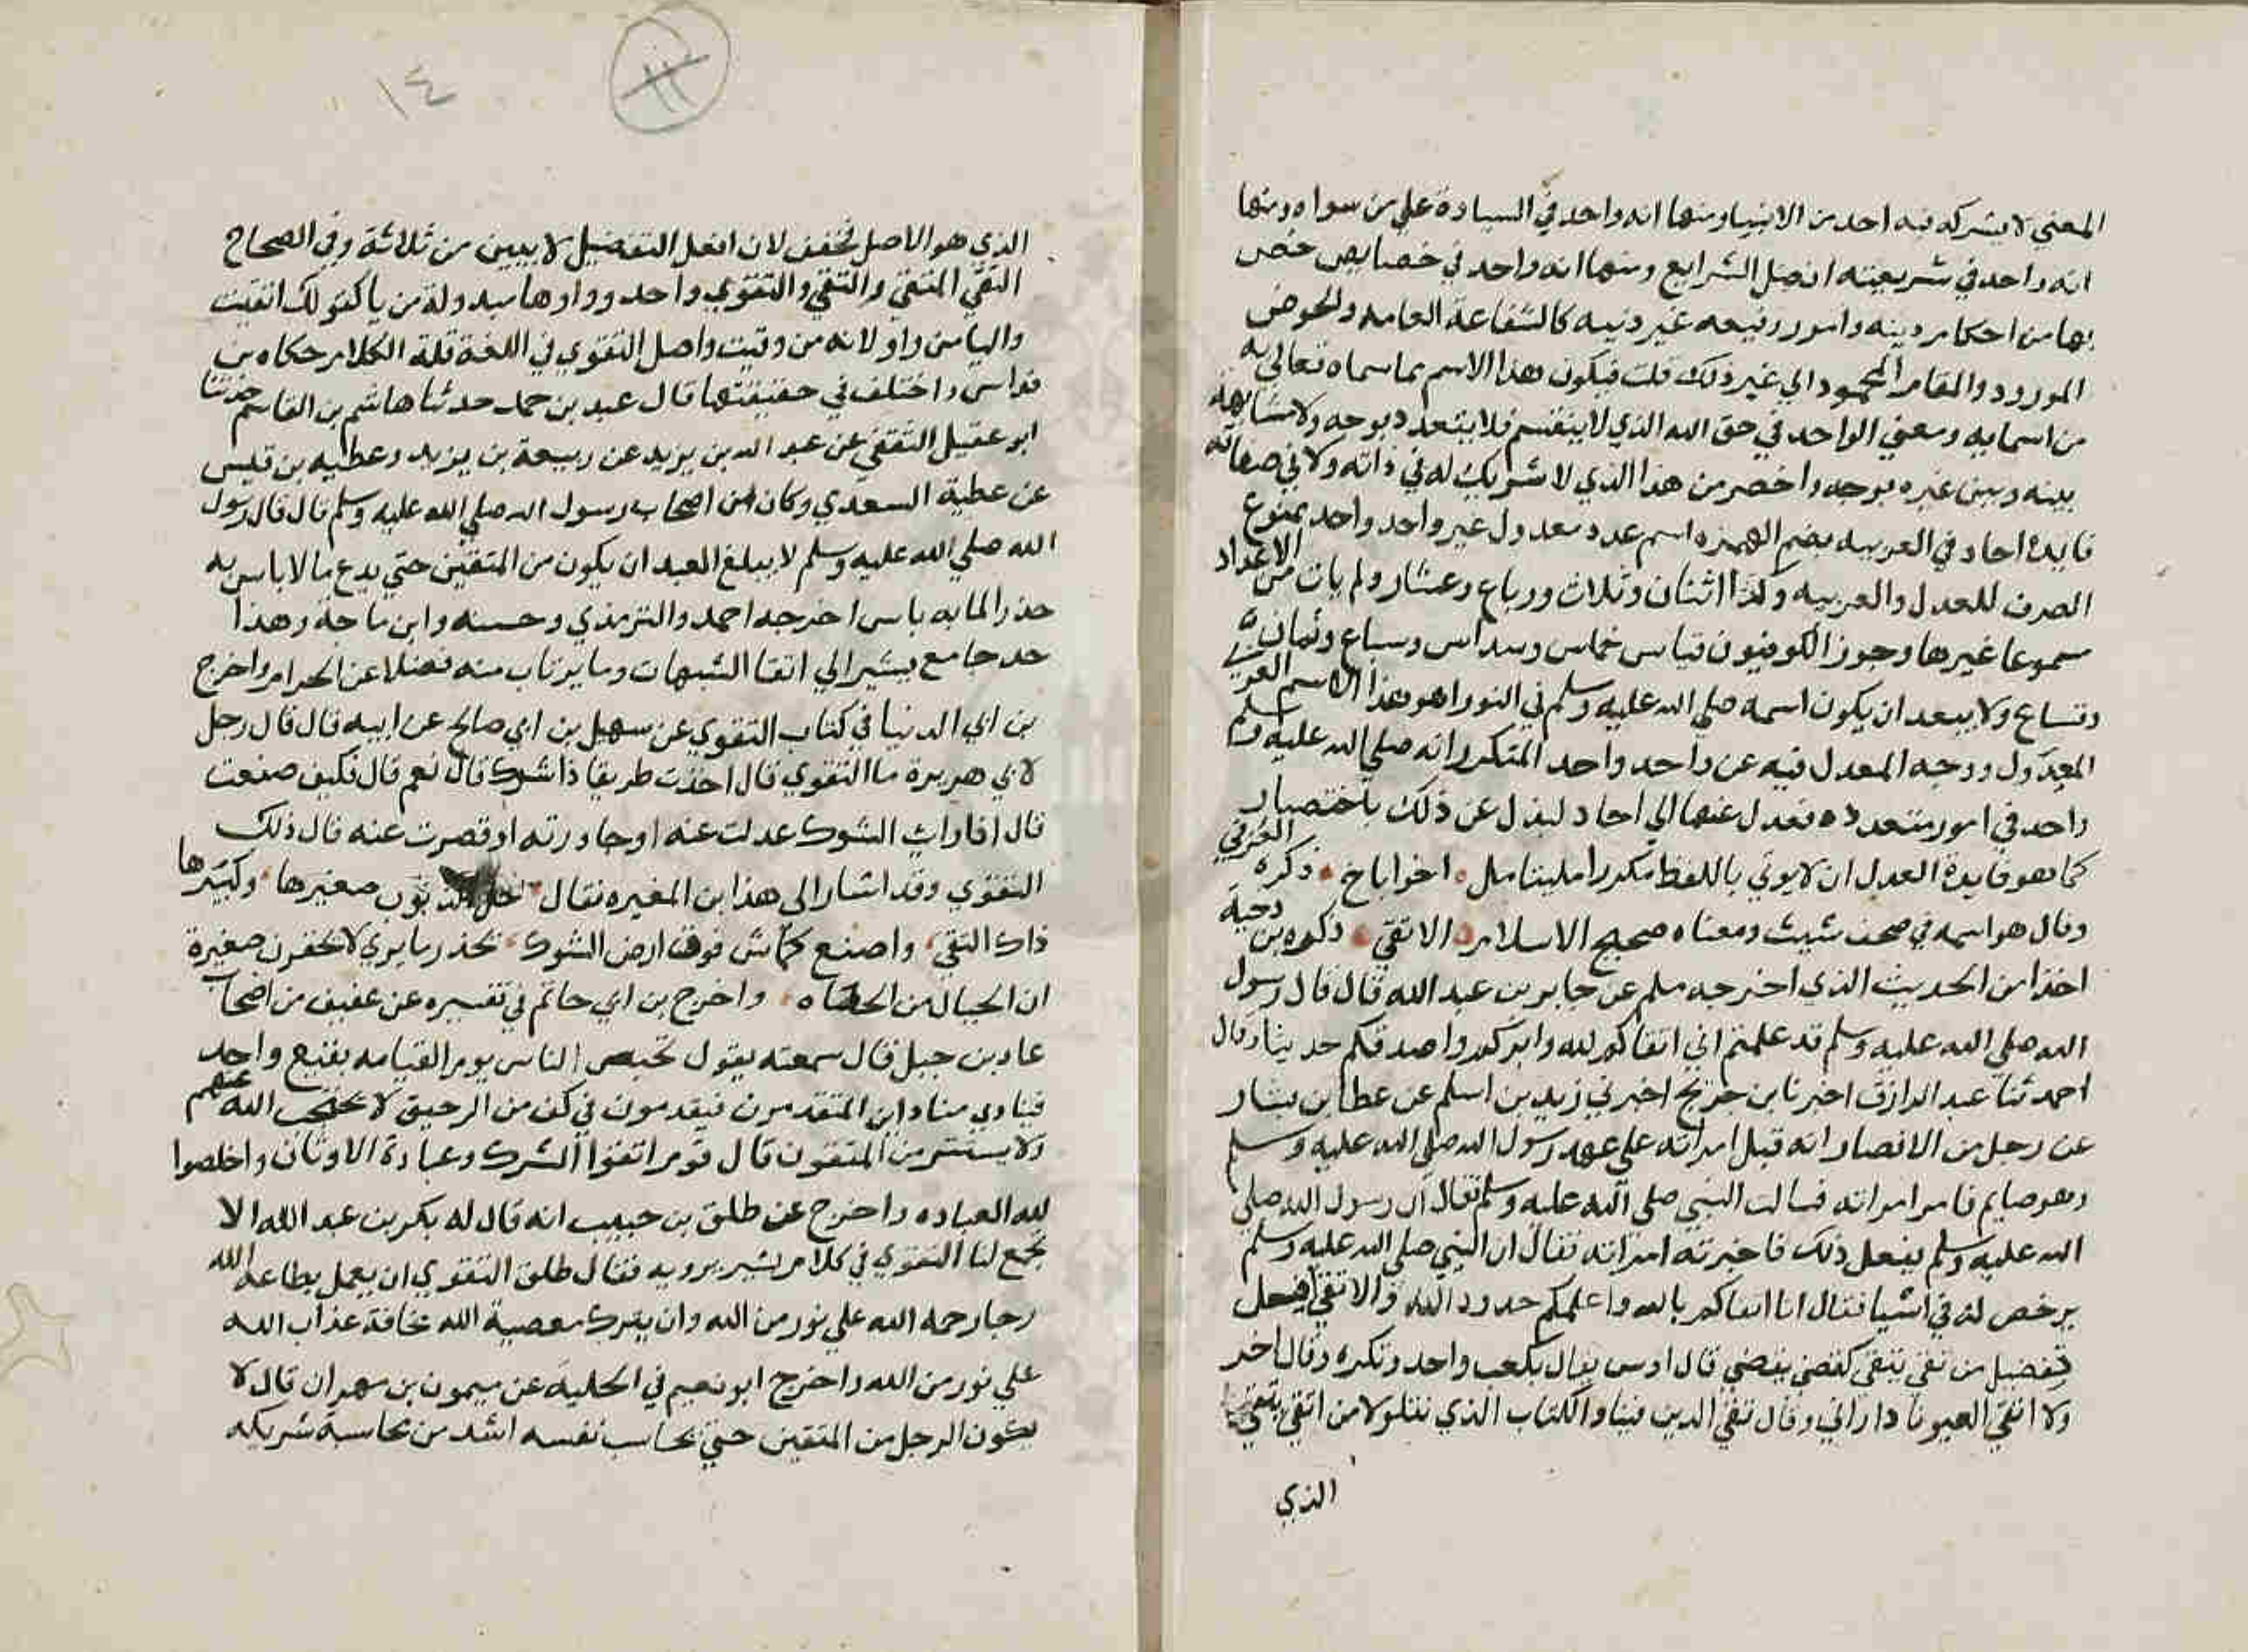 المعني لا يشركه فيه احد من الانبيا ومنها انه واحد في السيادة علي من سواه ومنها
انه واحد في شريعته افضل الشرايع ومنها انه واحد في خصايص خص
بها من احكام دينه وامور رفيعه غير دينيه كالشفاعة العامه والحوض
المورود والمقام المحمود الي غير ذلك قلت فيكون هذا الاسم مما سماه تعالي به
من اسمايه ومعني الواحد في حق الله الذي لا ينقسم فلا يتعدد بوجه ولا مشابهة
بينه وبين غيره بوجه واخصر من هذا الذي لا شريك له في ذاته ولا في صفاته
فايدة احاد في العربيه بضم الهمزه اسم عدد معدول عن واحد واحد ممنوع
الصرف للعدل والعربيه وكذا اثنان وثلاث ورباع وعشار ولم يات من الاعداد
مسموعا غيرها وجوز الكوفيون قياس خماس وسداس وسباع وثمان
وتساع ولا يبعد ان يكون اسمه صلي الله عليه وسلم في التوراه هو هذا الاسم العربي
المعدول ووجه العدل فيه عن واحد واحد المتكرر انه صلي الله عليه وسلم
واحد في امور متعدده فعدل عنها الي احاد ليدل عن ذلك باختصار
كما هو فايدة العدل ان لا يوتي باللفظ مكررا مليتامل اخراباخ ذكره العزفي
وقال هو اسمه في صحف شيث ومعناه صحيح الاسلام الاتقي ذكره بن دحية
اخذا من الحديث الذي اخرجه مسلم عن جابر بن عبد الله قال قال رسول
الله صلي الله عليه وسلم قد علمتم اني اتقاكم لله وابركم واصدقكم حديثا وقال
احمد ثنا عبد الرازق اخبرنا بن جريج اخبرني زيد بن اسلم عن عطا بن يسار
عن رجل من الانصار انه قبل امراته علي عهد رسول الله صلي الله عليه وسلم
وهو صايم فامر امراته فسالت النبي صلي الله عليه وسلم فقال ان رسول الله صلي
الله عليه وسلم يفعل ذلك فاخبرته امراته فقال ان النبي صلي الله عليه وسلم
يرخص له في اشيا فقال انا اتقاكم بالله واعلمكم حدود الله والاتقي افعل
تفضيل من تقي يتقي كقضي يقضي قال اوس تقال بكعب واحد وتكره وقال اخر
ولا اتقي الغيور اذا راني وقال تقي الدين فينا والكتاب الذي نتلو لا من اتقي يتقي
الذي
١٤
الذي هو الاصل مخفف لان افعل التفضيل لا يبني من ثلاثة وفي الصحاح
التقي المتقي والتقي والتقوي واحد وواوها مبدولة من يا كقولك اتقيت
واليا من واو لانه من وقيت واصل التقوي في اللغة قلة الكلام حكاه بن
فواس واختلف في حقيقتها قال عبد بن حميد حدثنا هاشم بن القاسم حدثنا
ابو عقيل الثقفي عن عبد الله بن يزيد عن ربيعة بن يزيد وعطيه بن قيس
عن عطية السعدي وكان من اصحاب رسول الله صلي الله عليه وسلم قال قال رسول
الله صلي الله عليه وسلم لا يبلغ العبد ان يكون من المتقين حتي يدع ما لا باس به
حذرا لما به باس اخرجه احمد والترمذي وحسنه وابن ماجة وهذا
حد جامع يشير الي اتقا الشبهات وما يرتاب منه فضلا عن الحرام واخرج
بن ابي الدنيا في كتاب التقوي عن سهيل بن ابي صالح عن ابيه قال قال رجل
لابي هريرة ما التقوي قال اخذت طريقا ذا شوك قال نعم قال فكيف صنعت
قال اذا رايت الشوك عدلت عنه او جاوزته او قصرت عنه قال ذلك
التقوي وقد اشار الي هذا ابن المغيره فقال خل الذنوب صغيرها وكبيرها
ذاك التقي واصنع كماش فوق ارض الشوك يحذر ما يري لا تحقرن صغيرة
ان الجبال من الحصاه واخرج بن ابي حاتم في تفسيره عن عفيف من اصحاب
عاد بن جبل قال سمعته يقول تحبص الناس يوم القيامه بقيع واحد
فينادي مناد اين المتقون فيقومون في كنف من الرحمن لا يحتجب الله عنهم
ولا يستتر من المتقون قال قوم اتقوا الشرك وعبادة الاوثان واخلصوا
لله العباده واخرج عن طلق بن حبيب انه قال له بكر بن عبد الله الا
تجمع لنا التقوي في كلام يسير يرويه فقال طلق التقوي ان يعمل بطاعة الله
رجا رحمة الله علي نور من الله وان يترك معصية الله مخافة عذاب الله
علي نور من الله واخرج ابو نعيم في الحلية عن ميمون بن مهران قال لا
يكون الرجل من المتقين حتي يحاسب نفسه اشد من محاسبة شريكه